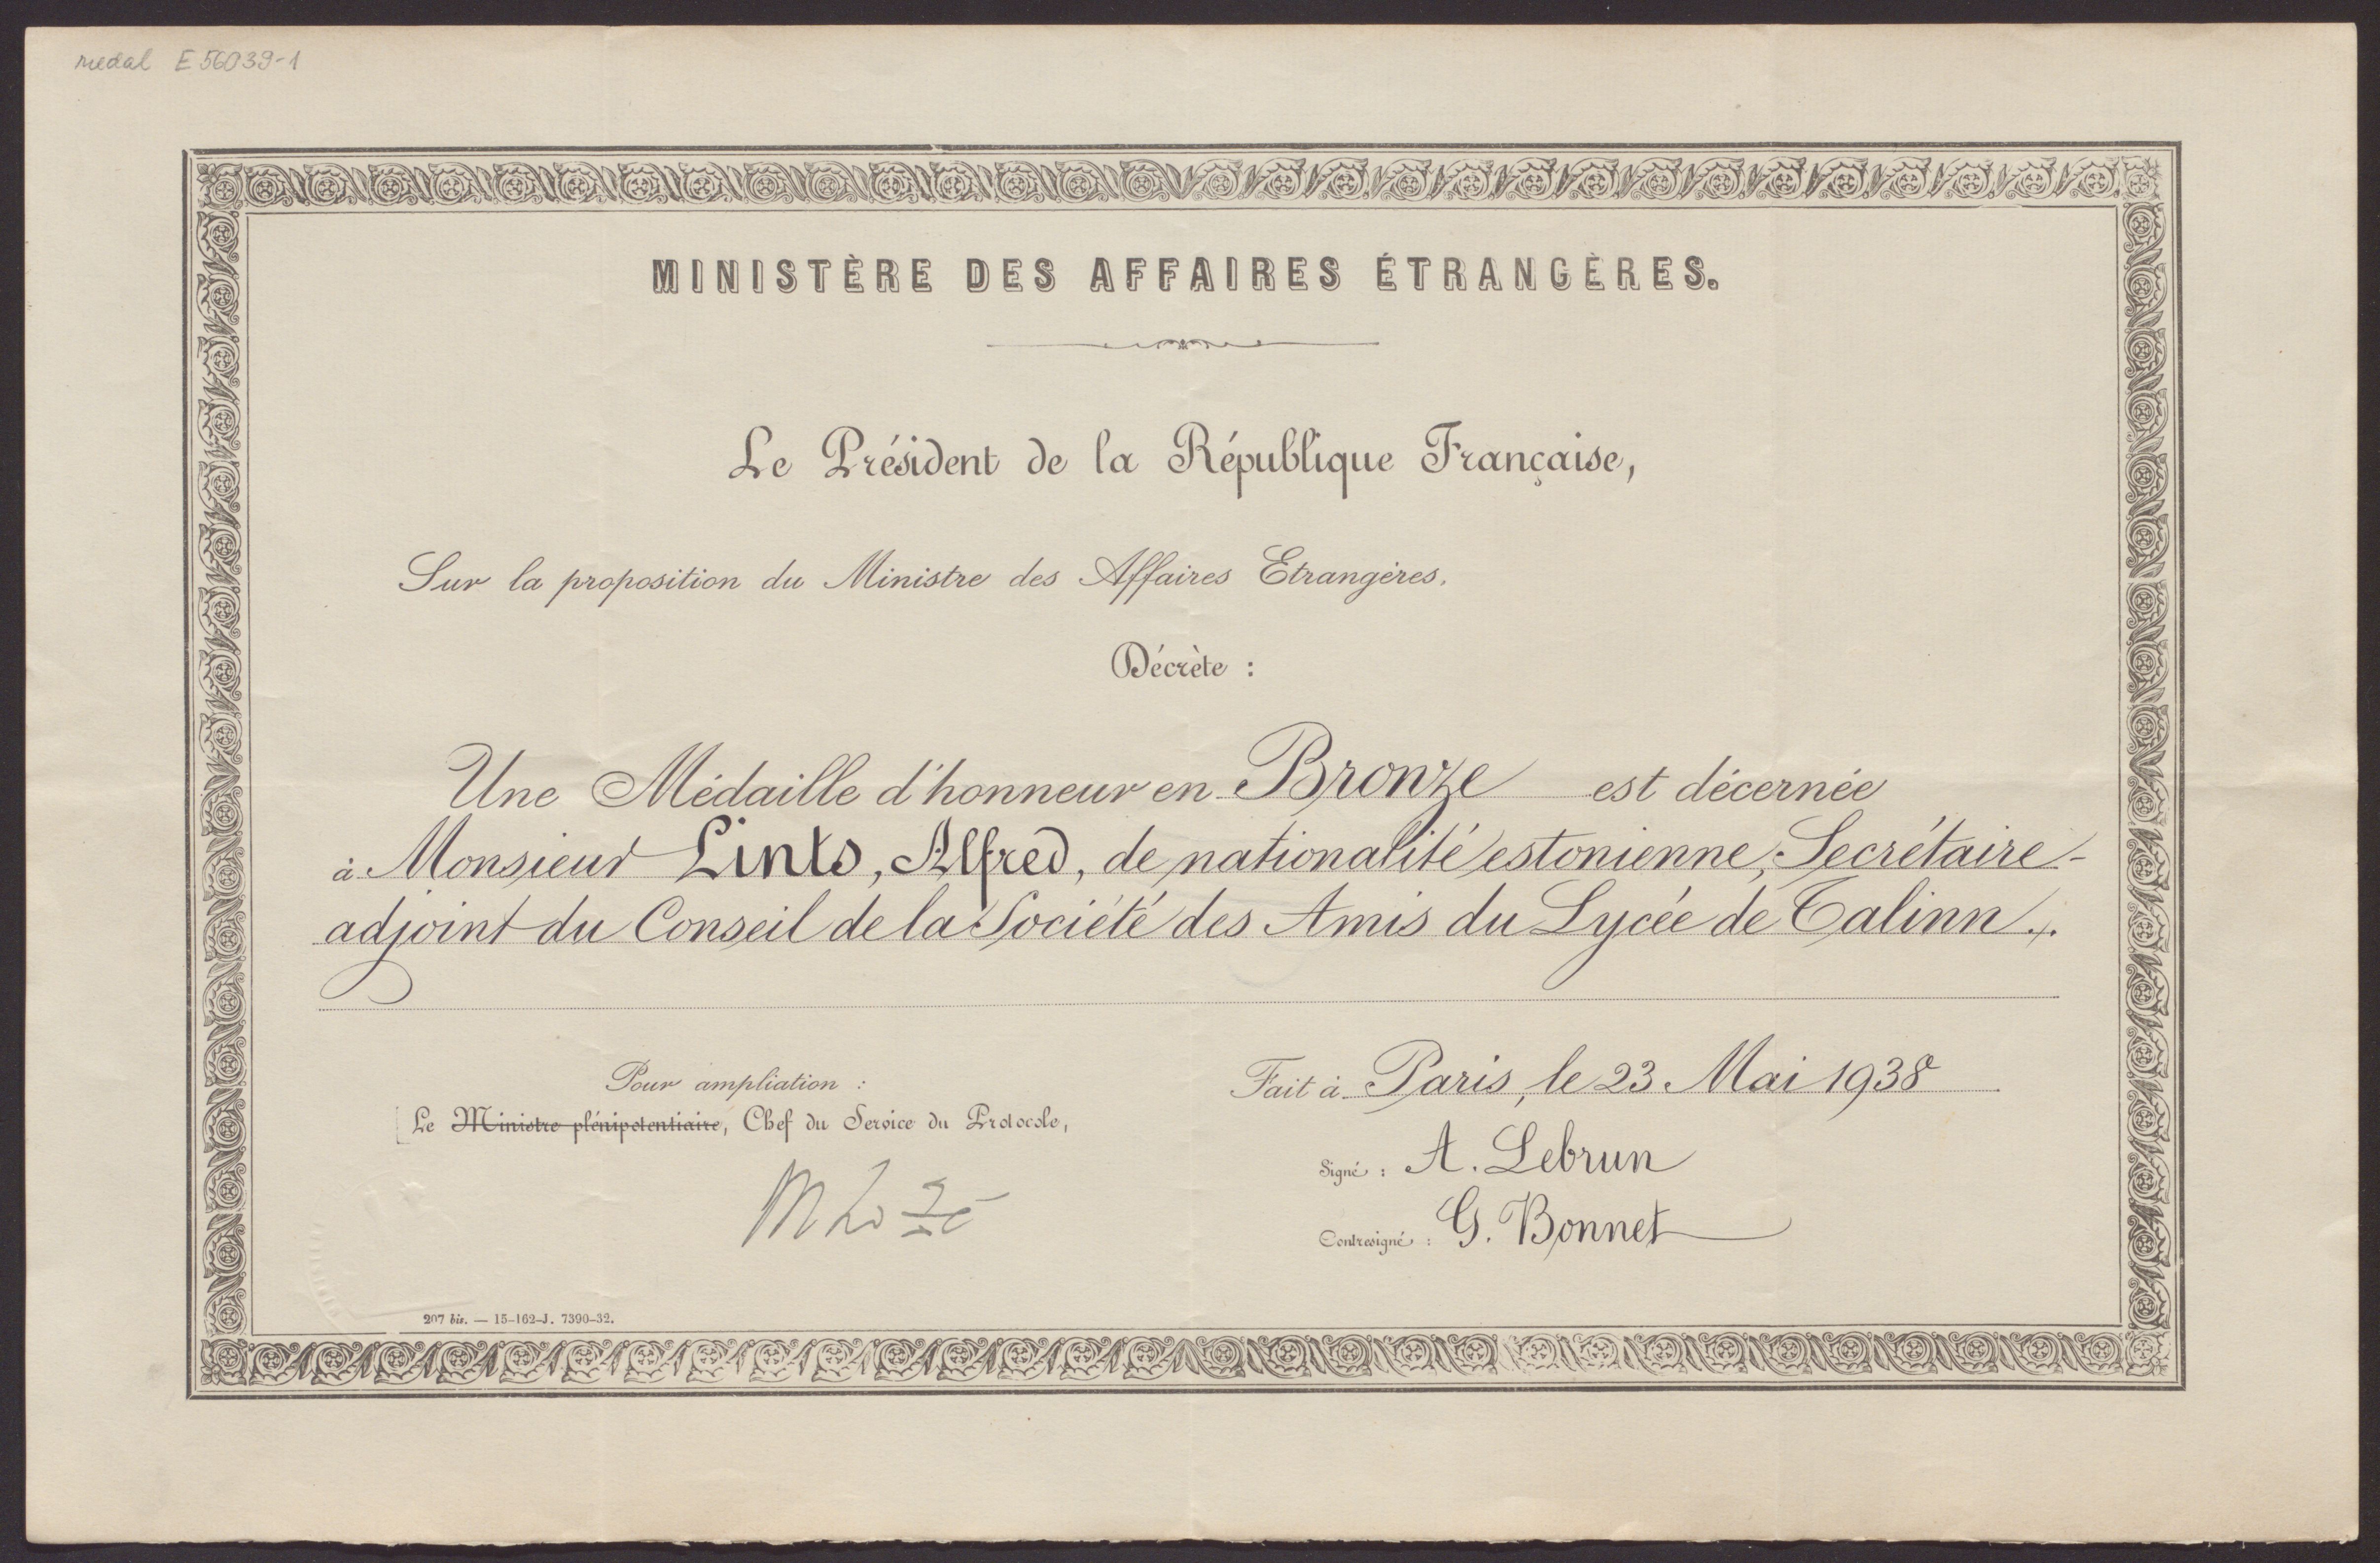 medal E 56039-1
MINISTÈRE DES AFFAIRES ÉTRANGÈRES.
Le Président de la République Française,
Sur la proposition du Ministre des Affaires Etrangères,
Décrète :
Une Médaille d'honneur en Bronze est décernée
à Monsieur Lints, Alfred, de nationalité estonienne, Secrétaire-
adjoint du Conseil de la Société des Amis du Lycée de Talinn.
Pour ampliation :
Le Ministre plénipotentiaire, Chef du Service du Protocole,
Fait à Paris, le 23 Mai 1938
Signé : A. Lebrun
Contresigné : G. Bonnet
207 bis. — 15-162-J. 7390-32.